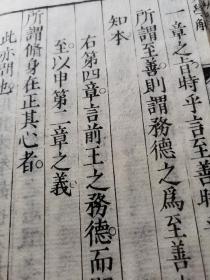 一章之言時乎言至善時
所謂至善則謂務德之爲至善
知本
右第四章言前王之務德而
至以申第二章之義
所謂脩身在正其心者
此亦